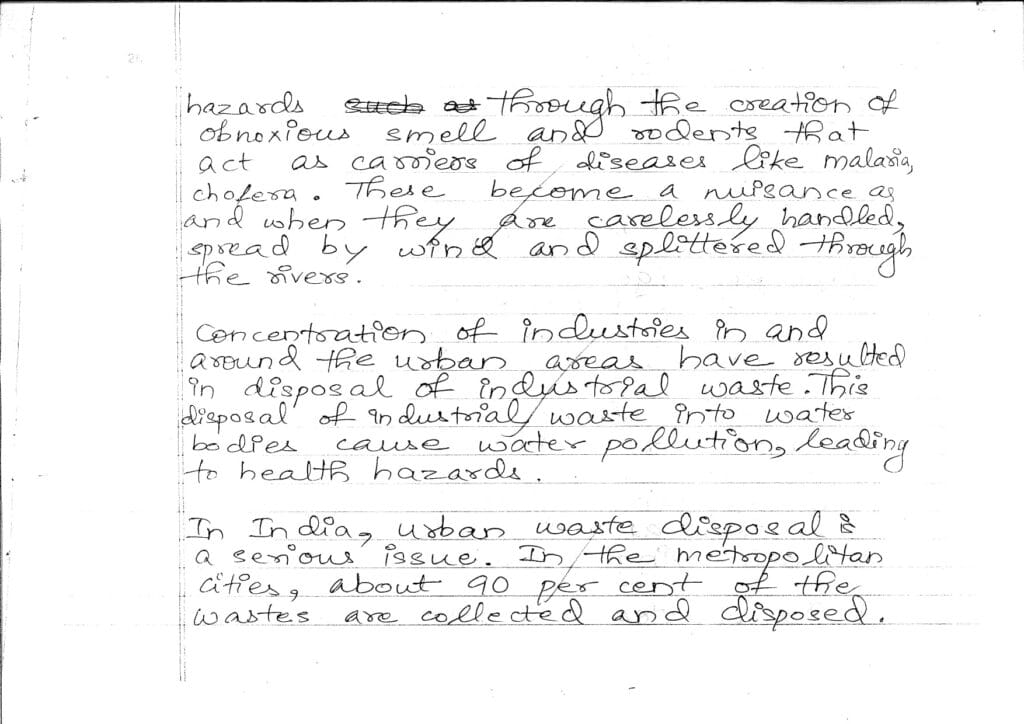 hazards such as through the creation of
obnoxious smell and rodents that
act as carriers of diseases like malaria,
cholera. These become a nuisance as
and when they are carelessly handled,
spread by wind and splittered through
the rivers.
Concentration of industries in and
around the urban areas have resulted
in disposal of industrial waste. This
disposal of industrial waste into water
bodies cause water pollution, leading
to health hazards.
In India, urban waste disposal is
a serious issue. In the metropolitan
cities, about 90 per cent of the
wastes are collected and disposed.